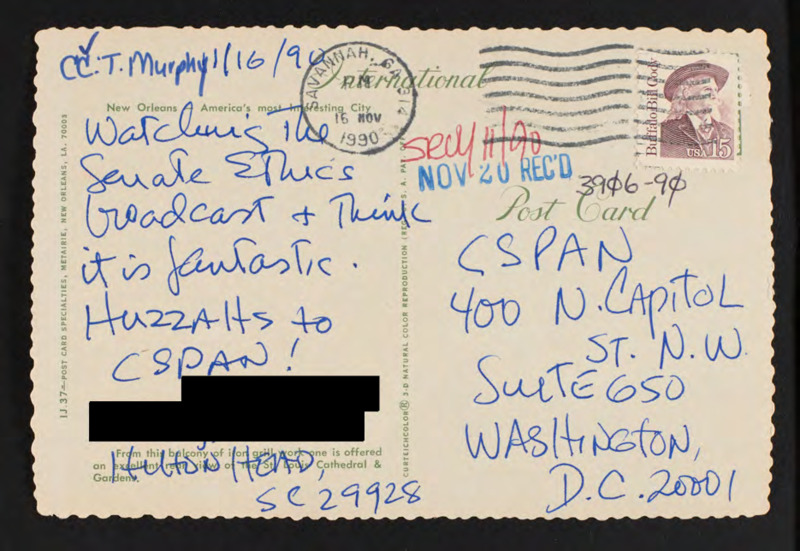 CC. T. Murphy 11/16/90
International
SAVANNAH, GA 314
PM
16 NOV
1990
Buffalo Bill Cody
USA 15
New Orleans America's most Interesting City
Watching The
Senate Ethics
broadcast + Think
it is fantastic.
HuzzaHs to
CSPAN!
From this balcony of iron grill work one is offered
an excellent view of the St. Louis Cathedral &
Gardens.
HILTON HEAD,
SC 29928
IJ.37—POST CARD SPECIALTIES, METAIRIE, NEW ORLEANS, LA. 70005
CURTEICHCOLOR® 3-D NATURAL COLOR REPRODUCTION
secy 11/90
NOV 20 REC'D
3906-90
Post Card
CSPAN
400 N. CAPITOL
ST. N.W.
SUITE 650
WASHINGTON,
D.C. 20001